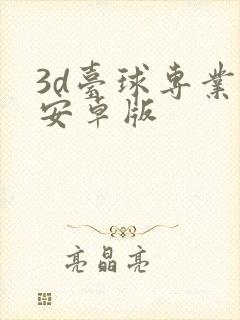 3d臺球專業
安卓版
亮晶亮